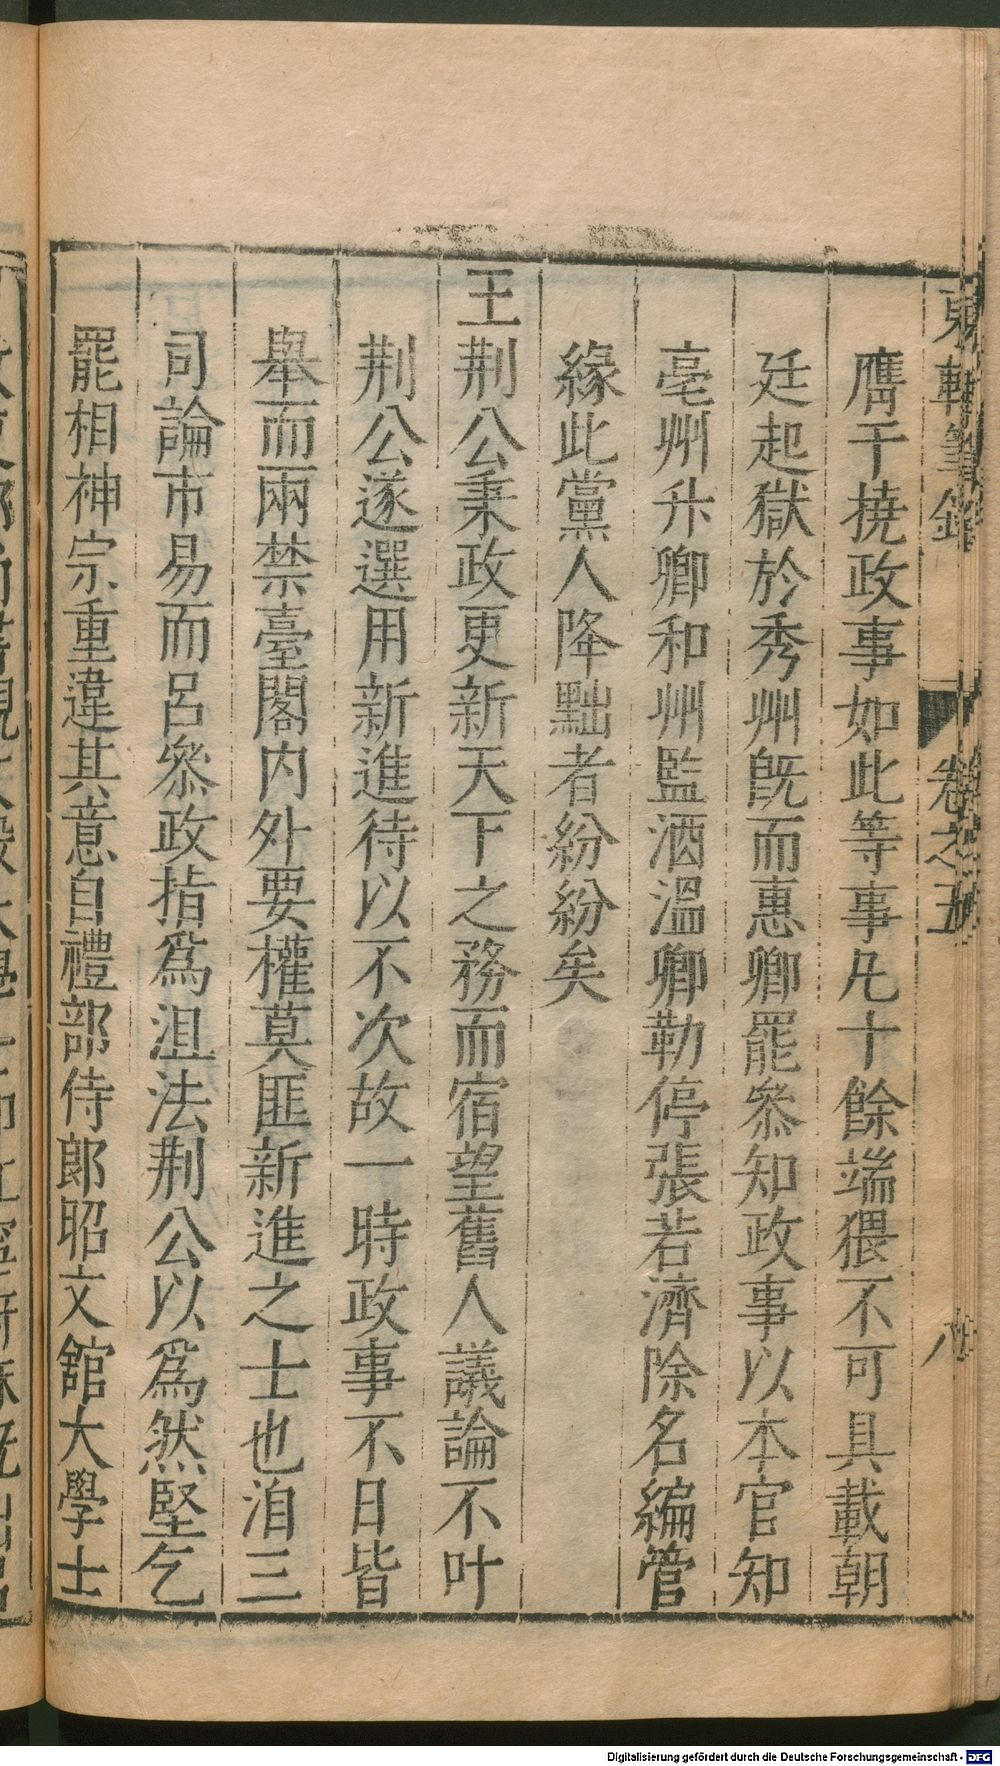 東軒筆錄 卷之五 八
膺干撓政事如此等事凡十餘端猥不可具載朝
廷起獄於秀州旣而惠卿罷叅知政事以本官知
亳州升卿和州監酒溫卿勒停張若濟除名編管
緣此黨人降黜者紛紛矣
王荆公秉政更新天下之務而宿望舊人議論不叶
荆公遂選用新進待以不次故一時政事不日皆
舉而兩禁臺閣内外要權莫匪新進之士也洎三
司論市易而呂叅政指爲沮法荆公以爲然堅乞
罷相神宗重違其意自禮部侍郎昭文舘大學士
Digitalisierung gefördert durch die Deutsche Forschungsgemeinschaft - DFG